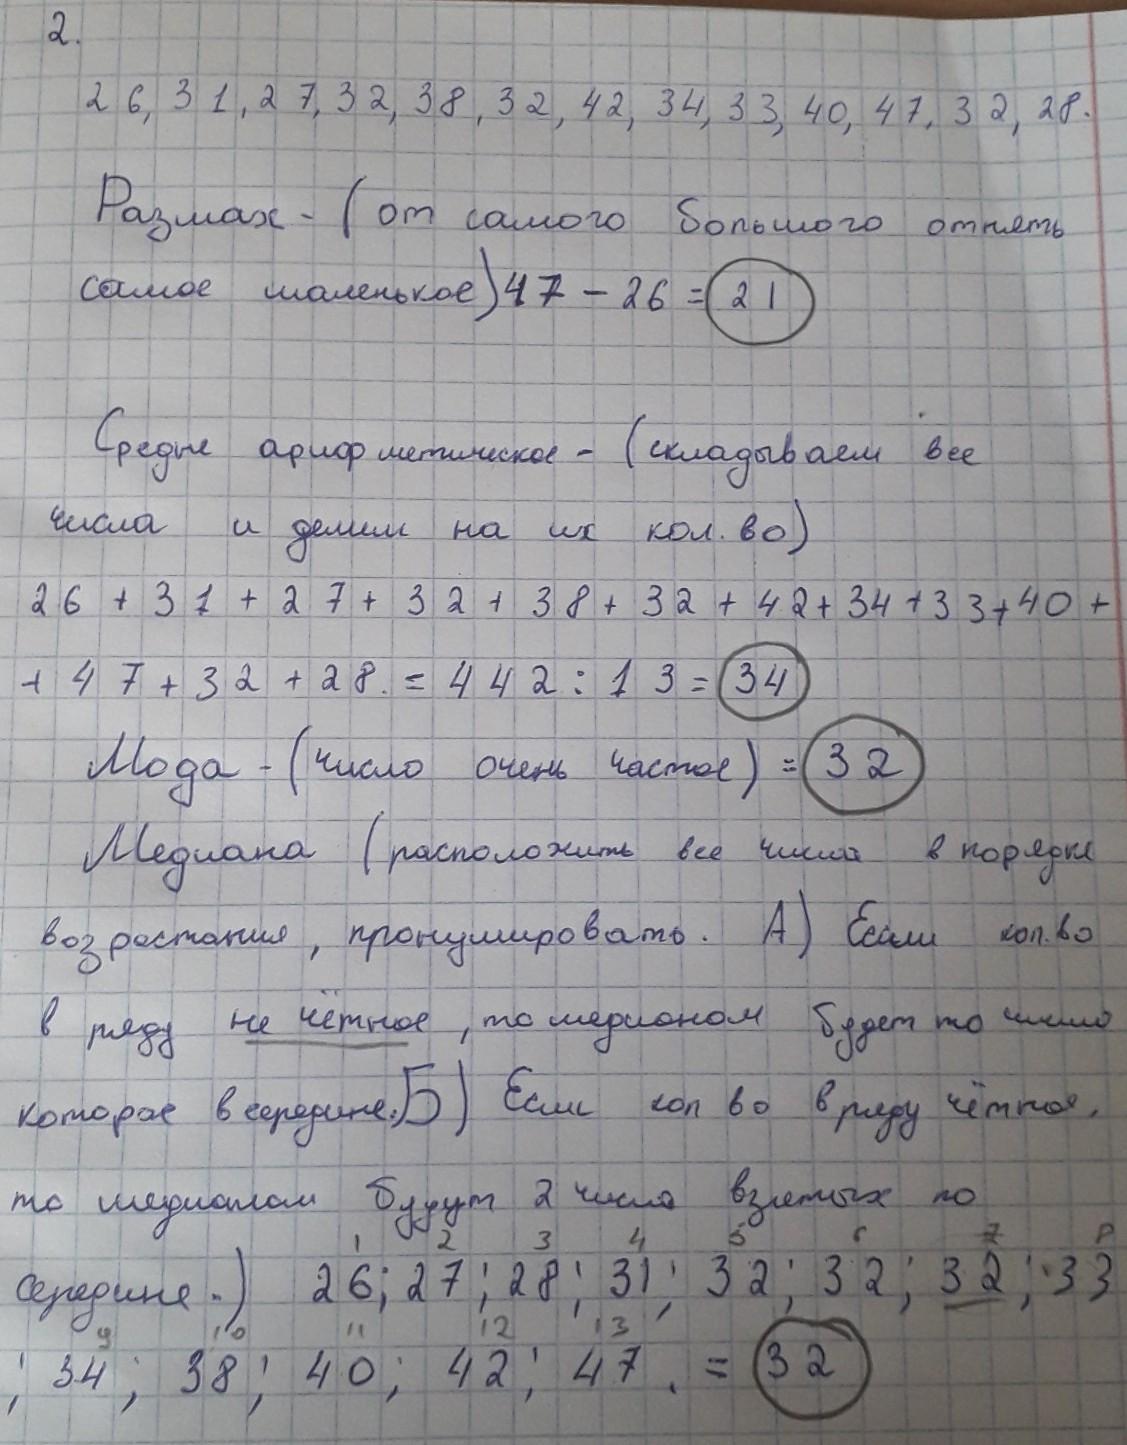 2.
26, 31, 27, 32, 38, 32, 42, 34, 33, 40, 47, 32, 28.
Размах - (от самого большого отнять
самое маленькое) 47 - 26 = 21
Средне арифметическое - (складываем все
числа и делим на их кол.во)
26 + 31 + 27 + 32 + 38 + 32 + 42 + 34 + 33 + 40 +
+ 47 + 32 + 28. = 442 : 13 = 34
Мода - (число очень частое) = 32
Медиана (расположить все числа в порядке
возрастания, пронумировать. А) Если кол.во
в ряду не чётное, то медианом будет то число
которое в середине. Б) Если кол во в ряду чётное,
то медианом будут 2 числа взятых по
1 2 3 4 5 6 7 8
середине.) 26; 27; 28; 31; 32; 32; 32; 33
9 10 11 12 13
; 34; 38; 40; 42; 47. = 32